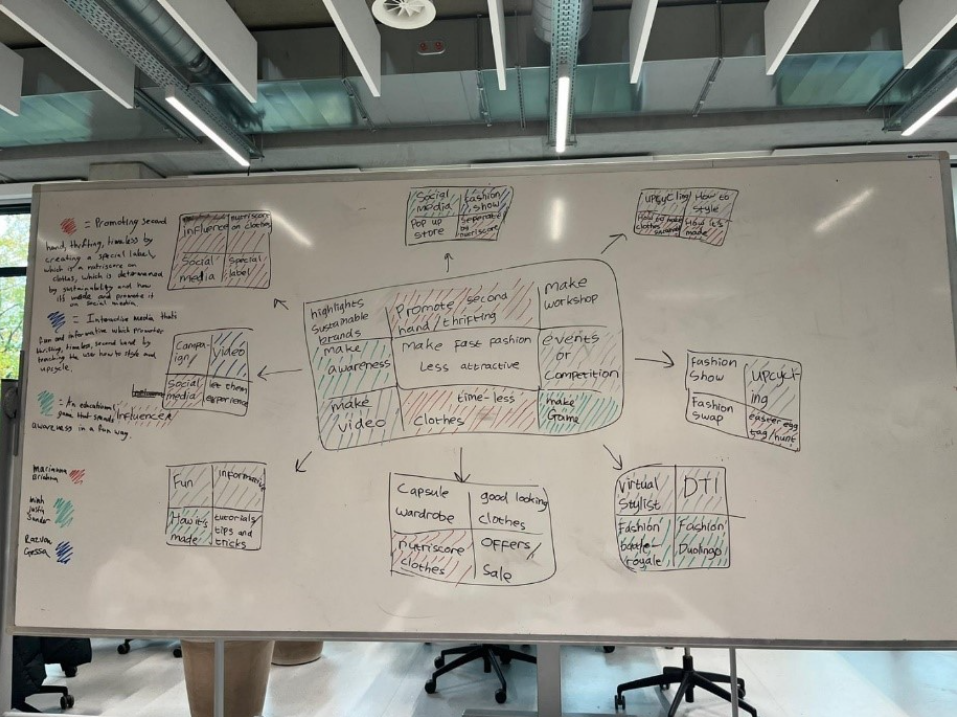 = Promoting second
hand, thrifting, timeless by
creating a special label,
which is a nutriscore on
clothes, which is determened
by sustainability and how
it's made and promote it
on social media
= Interactive media that's
fun and informative which promotes
thrifting, timeless, second hand by
teaching the user how to style and
upcycle.
= An educational
game that spreads
awareness in a fun way.
Marianna
minh
Justin
Sander
Razvan
influencer
nutriscore
on clothes
Social
media
Special
label
Social
media
Fashion
show
Pop up
store
Seperation
by nutriscore
UPCYCling
How to
style
How to make
clothes
How it's
made
highlights
Sustainable
brands
Promote second
hand/thrifting
make
workshop
make
awareness
Make fast fashion
Less attractive
events
or
Competition
make
video
time-less
clothes
make
Game
Campa-
ign
Video
Social
media
let them
experience
Influencer
Fashion
Show
Upcycl-
ing
Fashion
Swap
easter egg
tag/hunt
Fun
informative
How it's
made
tutorials
tips and
tricks
Capsule
wardrobe
good looking
clothes
nutriscore
clothes
OFFers/
Sale
Virtual
Stylist
DTI
Fashion
battle
royale
Fashion
Duolingo